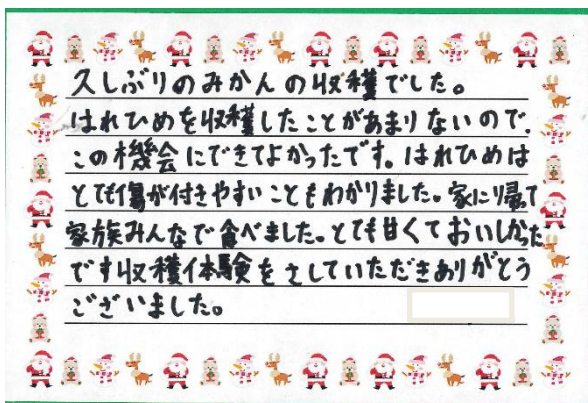 久しぶりのみかんの収穫でした。
はれひめを収穫したことがあまりないので、
この機会にできてよかったです。はれひめは
とても傷が付きやすいこともわかりました。家に帰て
家族みんなで食べました。とても甘くておいしかった
です収穫体験をさしていただきありがとう
ございました。